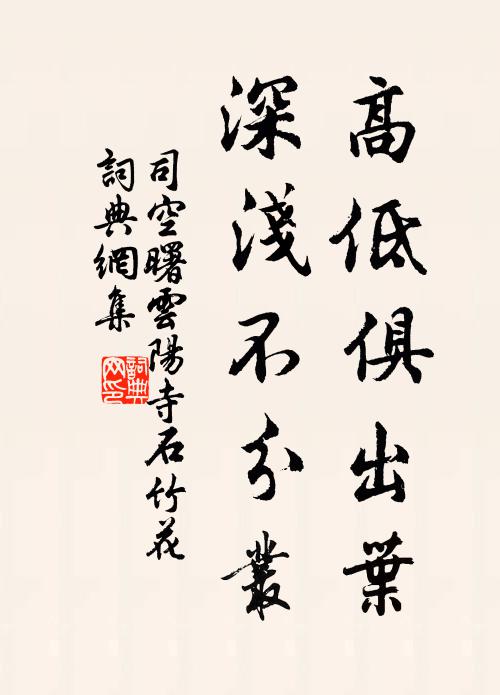 高低俱出葉
深淺不分叢
司空曙雲陽寺石竹花
詞典網集
詞典網印